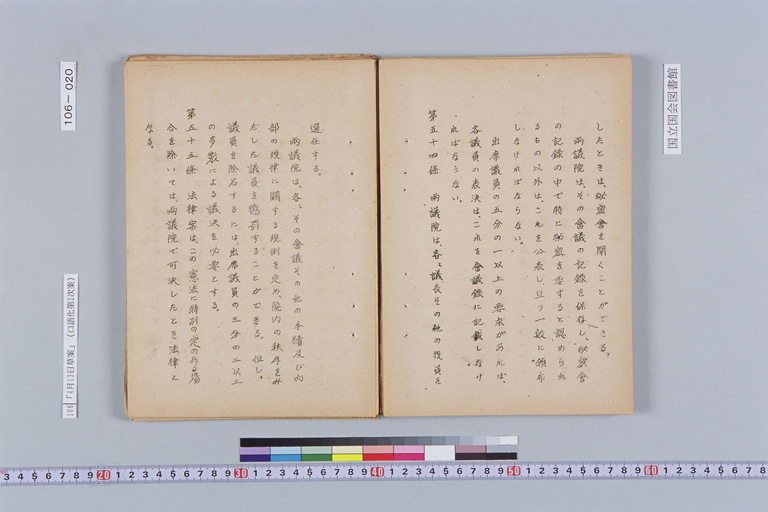 したときは、秘密會を開くことができる。
兩議院は、その會議の記録を保存し、秘密會
の記録の中で特に秘密を要すると認められ
るもの以外は、これを公表し、且つ一般に頒布
しなければならない。
出席議員の五分の一以上の要求があれば、
各議員の表決は、これを會議錄に記載しなけ
ればならない。
第五十四條 兩議院は、各〻議長その他の役員を
選任する。
兩議院は、各〻その會議その他の手續及び内
部の規律に關する規則を定め、院内の秩序をみ
だした議員を懲罰することができる。但し、
議員を除名するには、出席議員の三分の二以上
の多數による議決を必要とする。
第五十五條 法律案は、この憲法に特別の定のある場
合を除いては、兩議院で可決したとき法律と
なる。
106-020
国立国会図書館
106 「4月13日草案」(口語化第1次案)
3 4 5 6 7 8 9 20 1 2 3 4 5 6 7 8 9 30 1 2 3 4 5 6 7 8 9 40 1 2 3 4 5 6 7 8 9 50 1 2 3 4 5 6 7 8 9 60 1 2 3 4 5 6 7 8